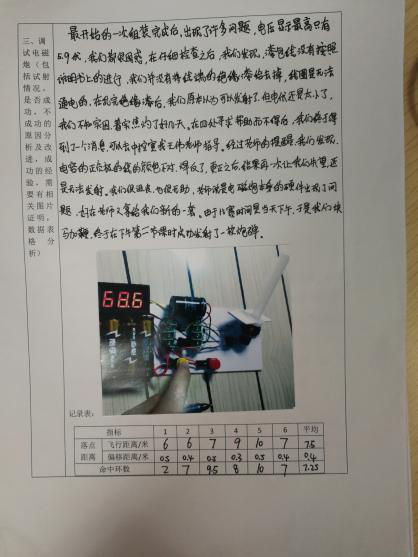 三、调试电磁炮（包括试射情况，是否成功，不成功的原因分析及改进，成功的经验，需要有相关图片证明，数据表格分析）
最开始的一次组装完成后，出现了许多问题，电压显示最高只有
5.9伏，我们都很困惑，在仔细检查之后，我们发现，漆包线没有按照
说明书上的进行，我们并没有将线端的绝缘漆给去掉，线圈是无法
通电的，在去完绝缘漆后，我们原本以为可以发射了，但电伏还是太小了，
我们不知原因，着实焦灼了好几天。在四处寻求帮助而不得后，我们终于得
到了一个消息，可以去中控室找王伟老师指导。经过老师的提醒，我们发现，
电容的正负极的线的颜色不对，焊反了，更正之后，结果再一次让我们失望，还
是无法发射。我们很沮丧，也很无助，老师说是电磁炮本身的硬件出现了问
题，好在老师又拿给我们新的一套。由于比赛时间是当天下午，于是我们快
马加鞭，终于在下午第二节课时成功发射了一枚炮弹。
68.6
记录表：
指标 1 2 3 4 5 6 平均
落点距离 飞行距离/米 6 6 7 9 10 7 7.5
偏移距离/米 0.5 0.4 0.5 0.3 0.5 0.4 0.4
命中环数 2 7 9.5 8 10 7 7.25